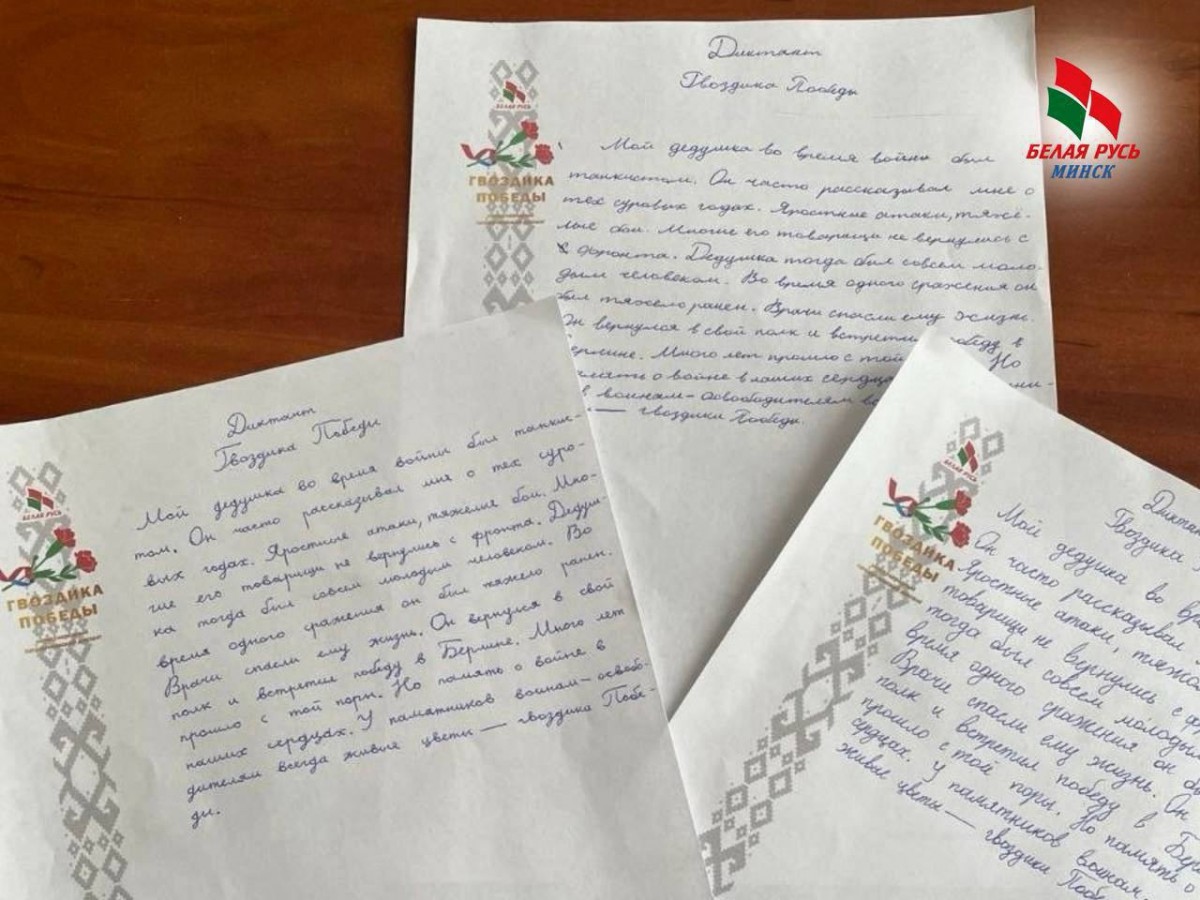 БЕЛАЯ РУСЬ
МИНСК
БЕЛАЯ РУСЬ
ГВОЗДИКА
ПОБЕДЫ
Диктант
Гвоздика Победы
Мой дедушка во время войны был
танкистом. Он часто рассказывал мне о
тех суровых годах. Яростные атаки, тяжё-
лые бои. Многие его товарищи не вернулись с
фронта. Дедушка тогда был совсем моло-
дым человеком. Во время одного сражения он
был тяжело ранен. Врачи спасли ему жизнь.
Он вернулся в свой полк и встретил победу в
Берлине. Много лет прошло с той Но
память о войне в наших
воинам-освободителям
— гвоздики Победы.
БЕЛАЯ РУСЬ
ГВОЗДИКА
ПОБЕДЫ
Диктант
Гвоздика Победы
Мой дедушка во время войны был танкис-
том. Он часто рассказывал мне о тех суро-
вых годах. Яростные атаки, тяжелые бои. Мно-
гие его товарищи не вернулись с фронта. Дедуш-
ка тогда был совсем молодым человеком. Во
время одного сражения он был тяжело ранен.
Врачи спасли ему жизнь. Он вернулся в свой
полк и встретил победу в Берлине. Много лет
прошло с той поры. Но память о войне в
наших сердцах. У памятников воинам-освобо-
дителям всегда живые цветы — гвоздика Побе-
ды.
БЕЛАЯ РУСЬ
ГВОЗДИКА
ПОБЕДЫ
Диктан
Гвоздика
Мой дедушка во вр
Он часто рассказывал
Яростные атаки, тяжё
товарищи не вернулись с ф
тогда был совсем молодым
время одного сражения он бы
Врачи спасли ему жизнь. Он
полк и встретил победу в Бер
прошло с той поры. Но память о
сердцах. У памятников воинам-
живые цветы — гвоздики Побе